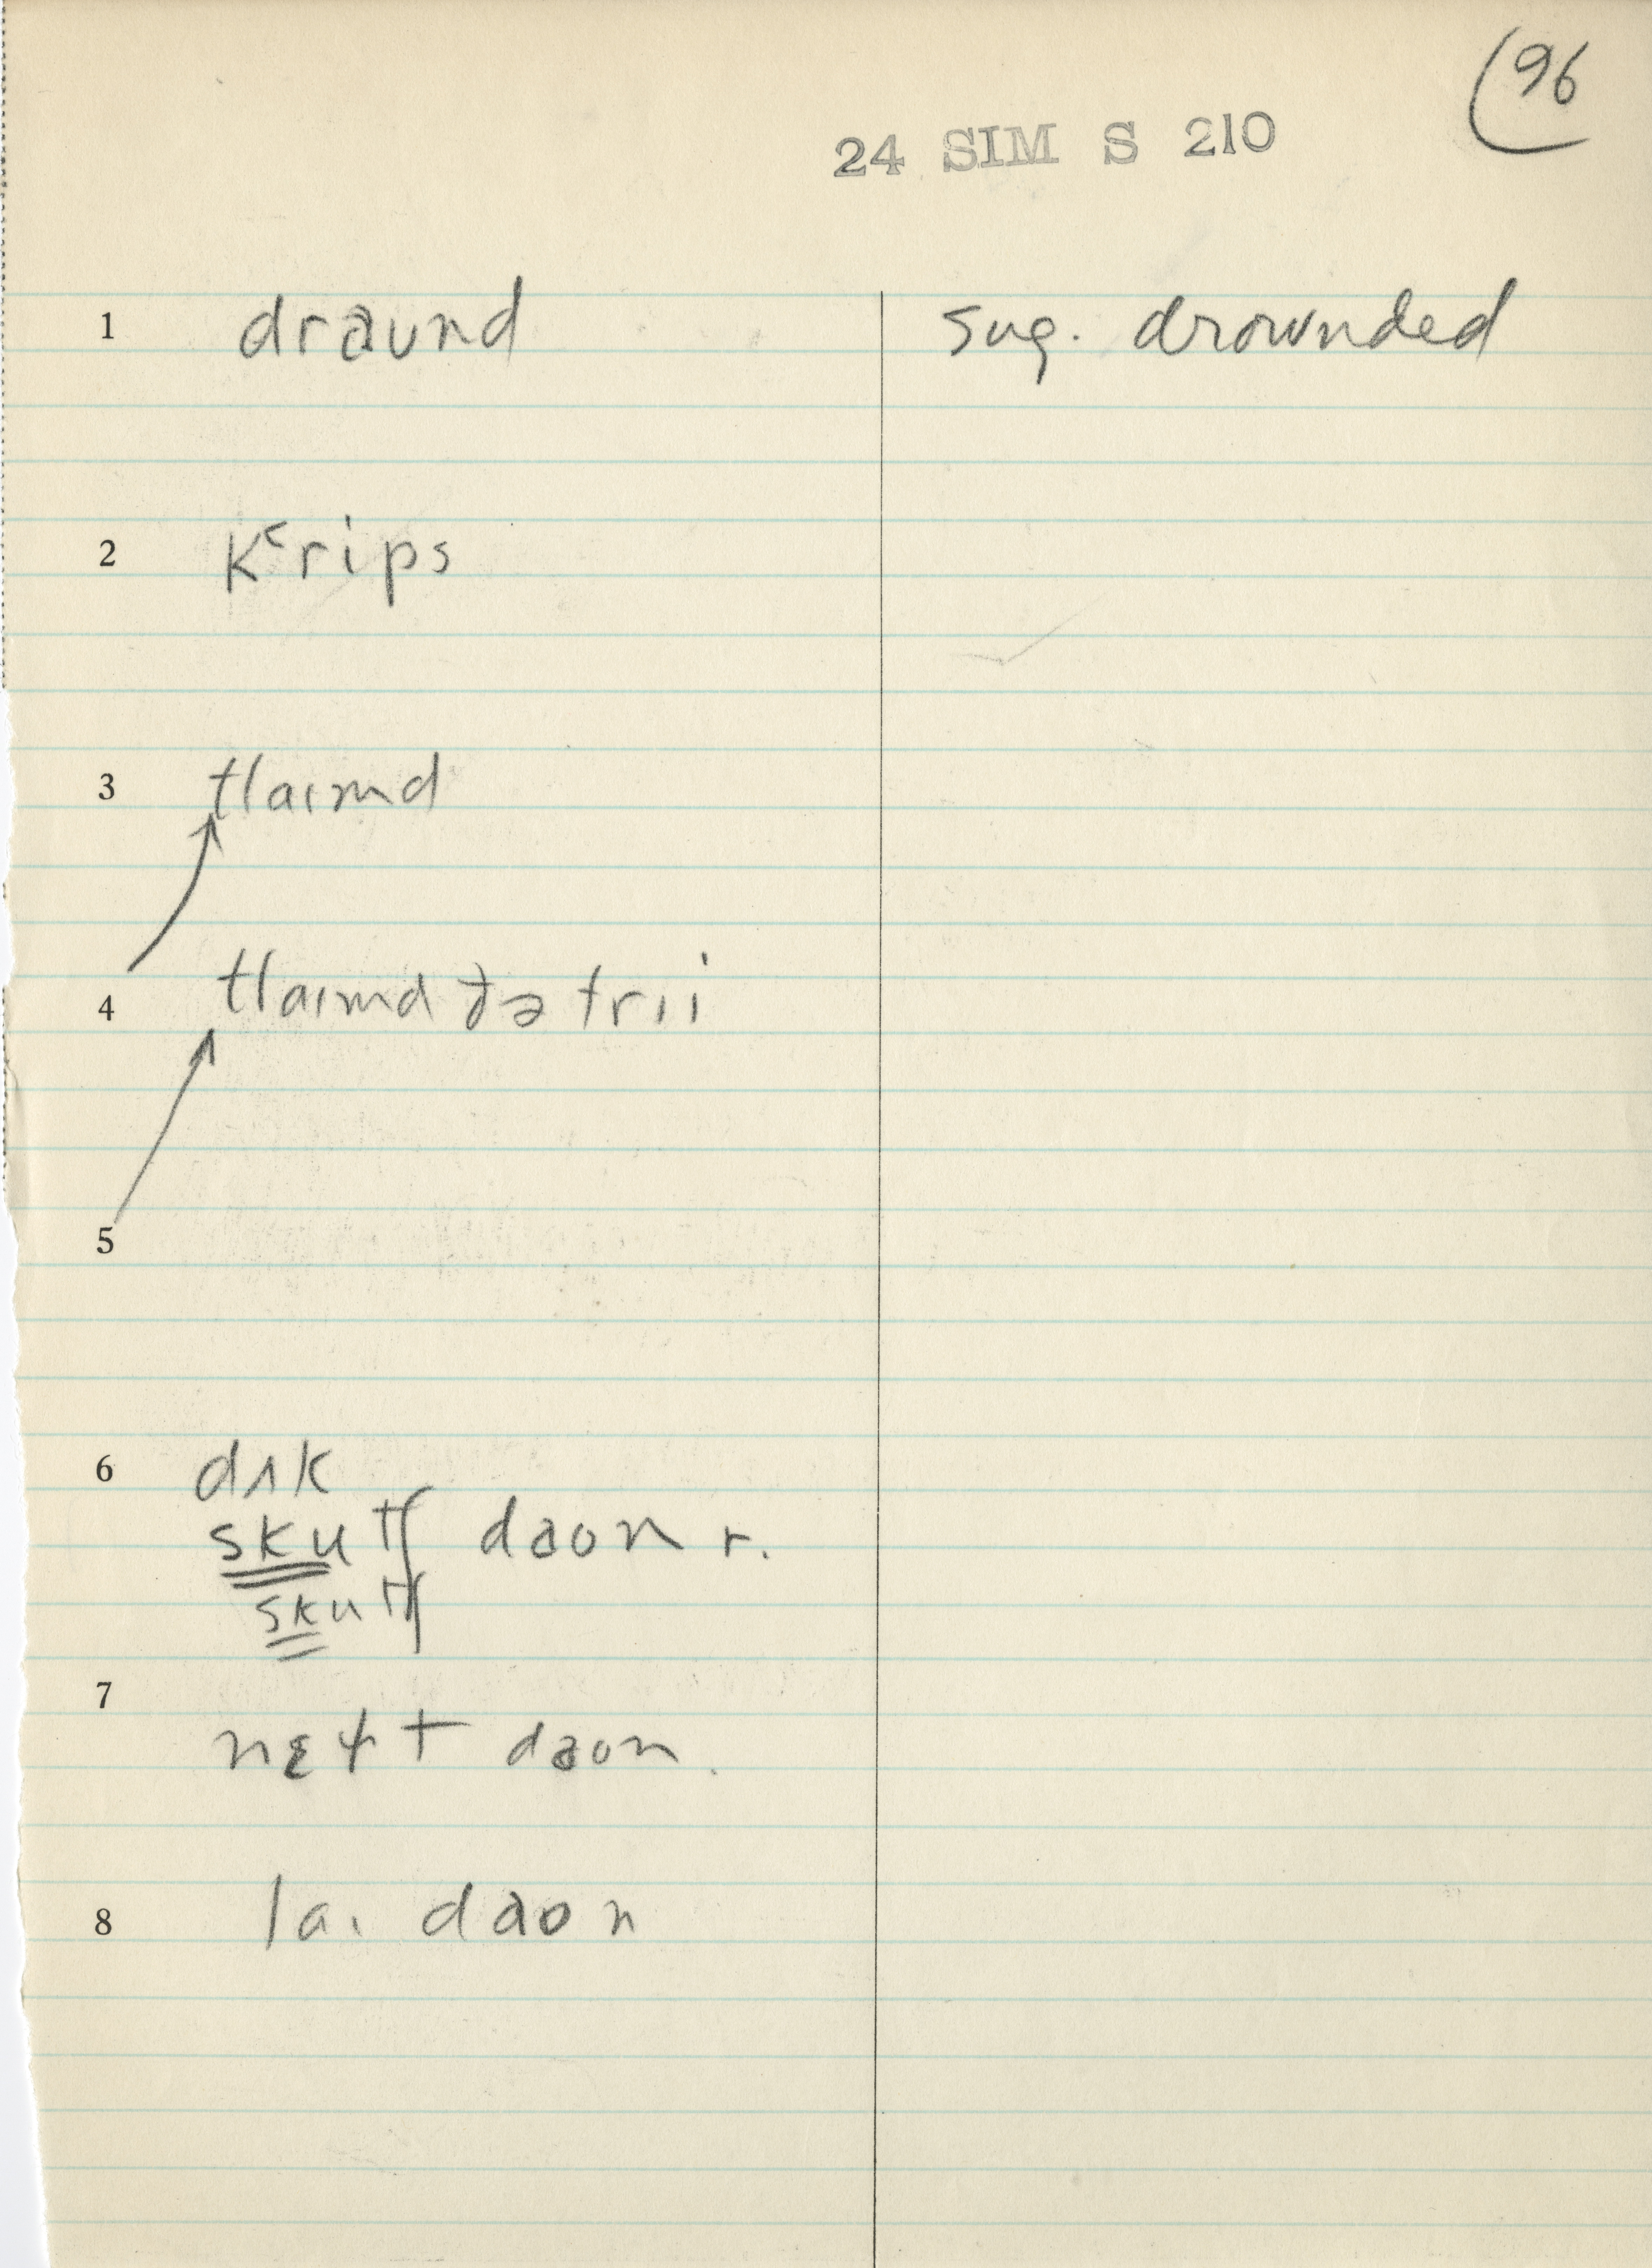 96
24 SIM S 210
1 draund sug. drownded
2 kʿrips
3 tlaɪmd
4 tlaɪmd ðə trɪi
5
6 dʌk
skutʃ daon r.
skutʃ
7
daon.
8 laɪ daon